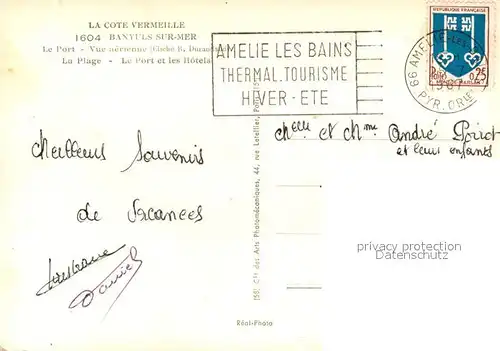 LA COTE VERMEILLE
1604 BANYULS SUR-MER
Le Port - Vue aérienne (Cliché R. 
La Plage - Le Port et les Hôtels
AMELIE LES BAINS
THERMAL.TOURISME
HIVER - ETE
REPUBLIQUE FRANÇAISE
0,25
66 AMELIE-LES
1967
PYR. ORles
Melle et Mme André Poirot
et leurs enfants
Meilleurs Souvenirs
de Vacances
Daniel
Cie des Arts Photomécaniques, 44, rue Letellier, Paris-15
Réal-Photo
privacy protection
Datenschutz